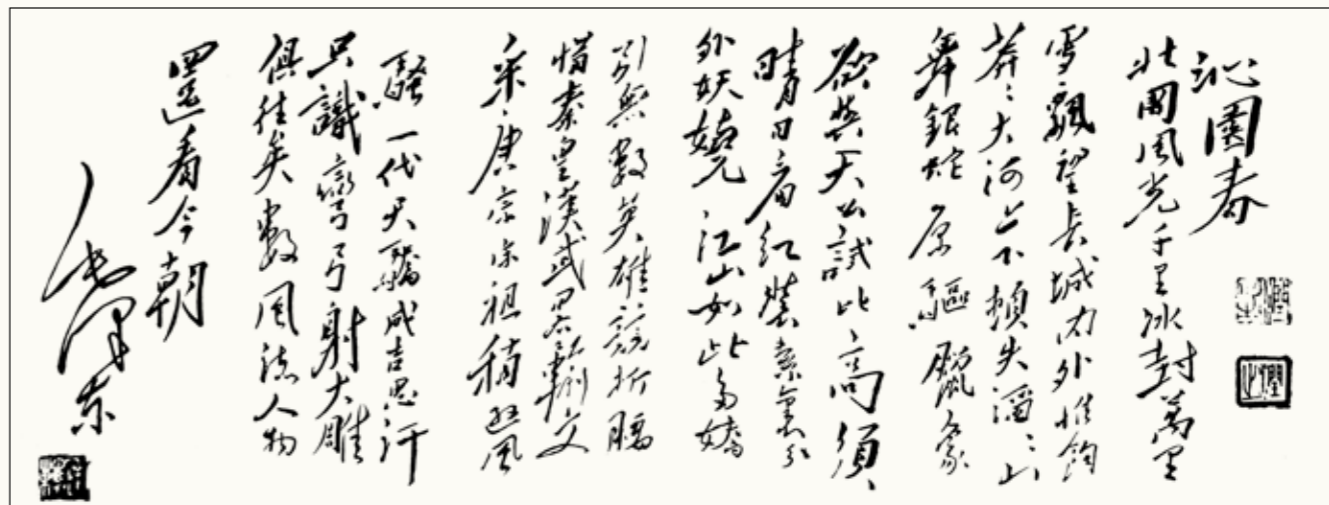 沁園春
北國風光千里冰封萬里
雪飄望長城内外惟餘
莽〻大河上下頓失滔〻山
舞銀蛇原驅臘象
欲與天公試比高須
晴日看紅裝素裹分
外妖嬈江山如此多嬌
引無數英雄競折腰
惜秦皇漢武略輸文
采唐宗宋祖稍遜風
騷一代天驕成吉思汗
只識彎弓射大雕
俱往矣數風流人物
還看今朝
毛澤東
潤之